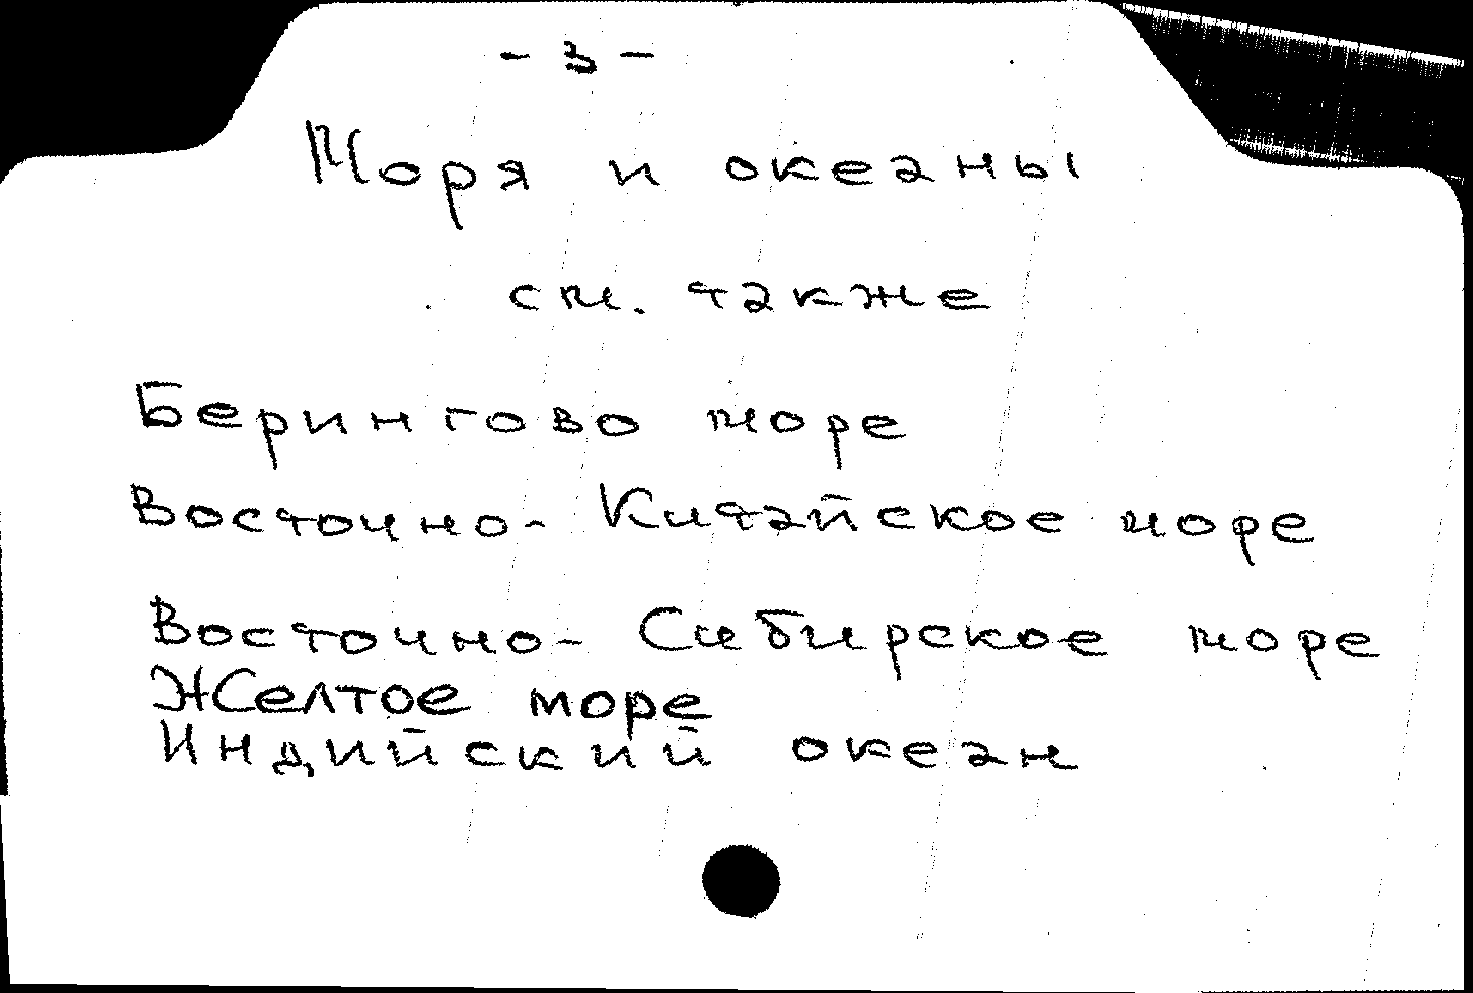 - 3 -
Моря и океаны
см. также
Берингово море
Восточно- Китайское море
Восточно- Сибирское море
Желтое море
Индийский океан